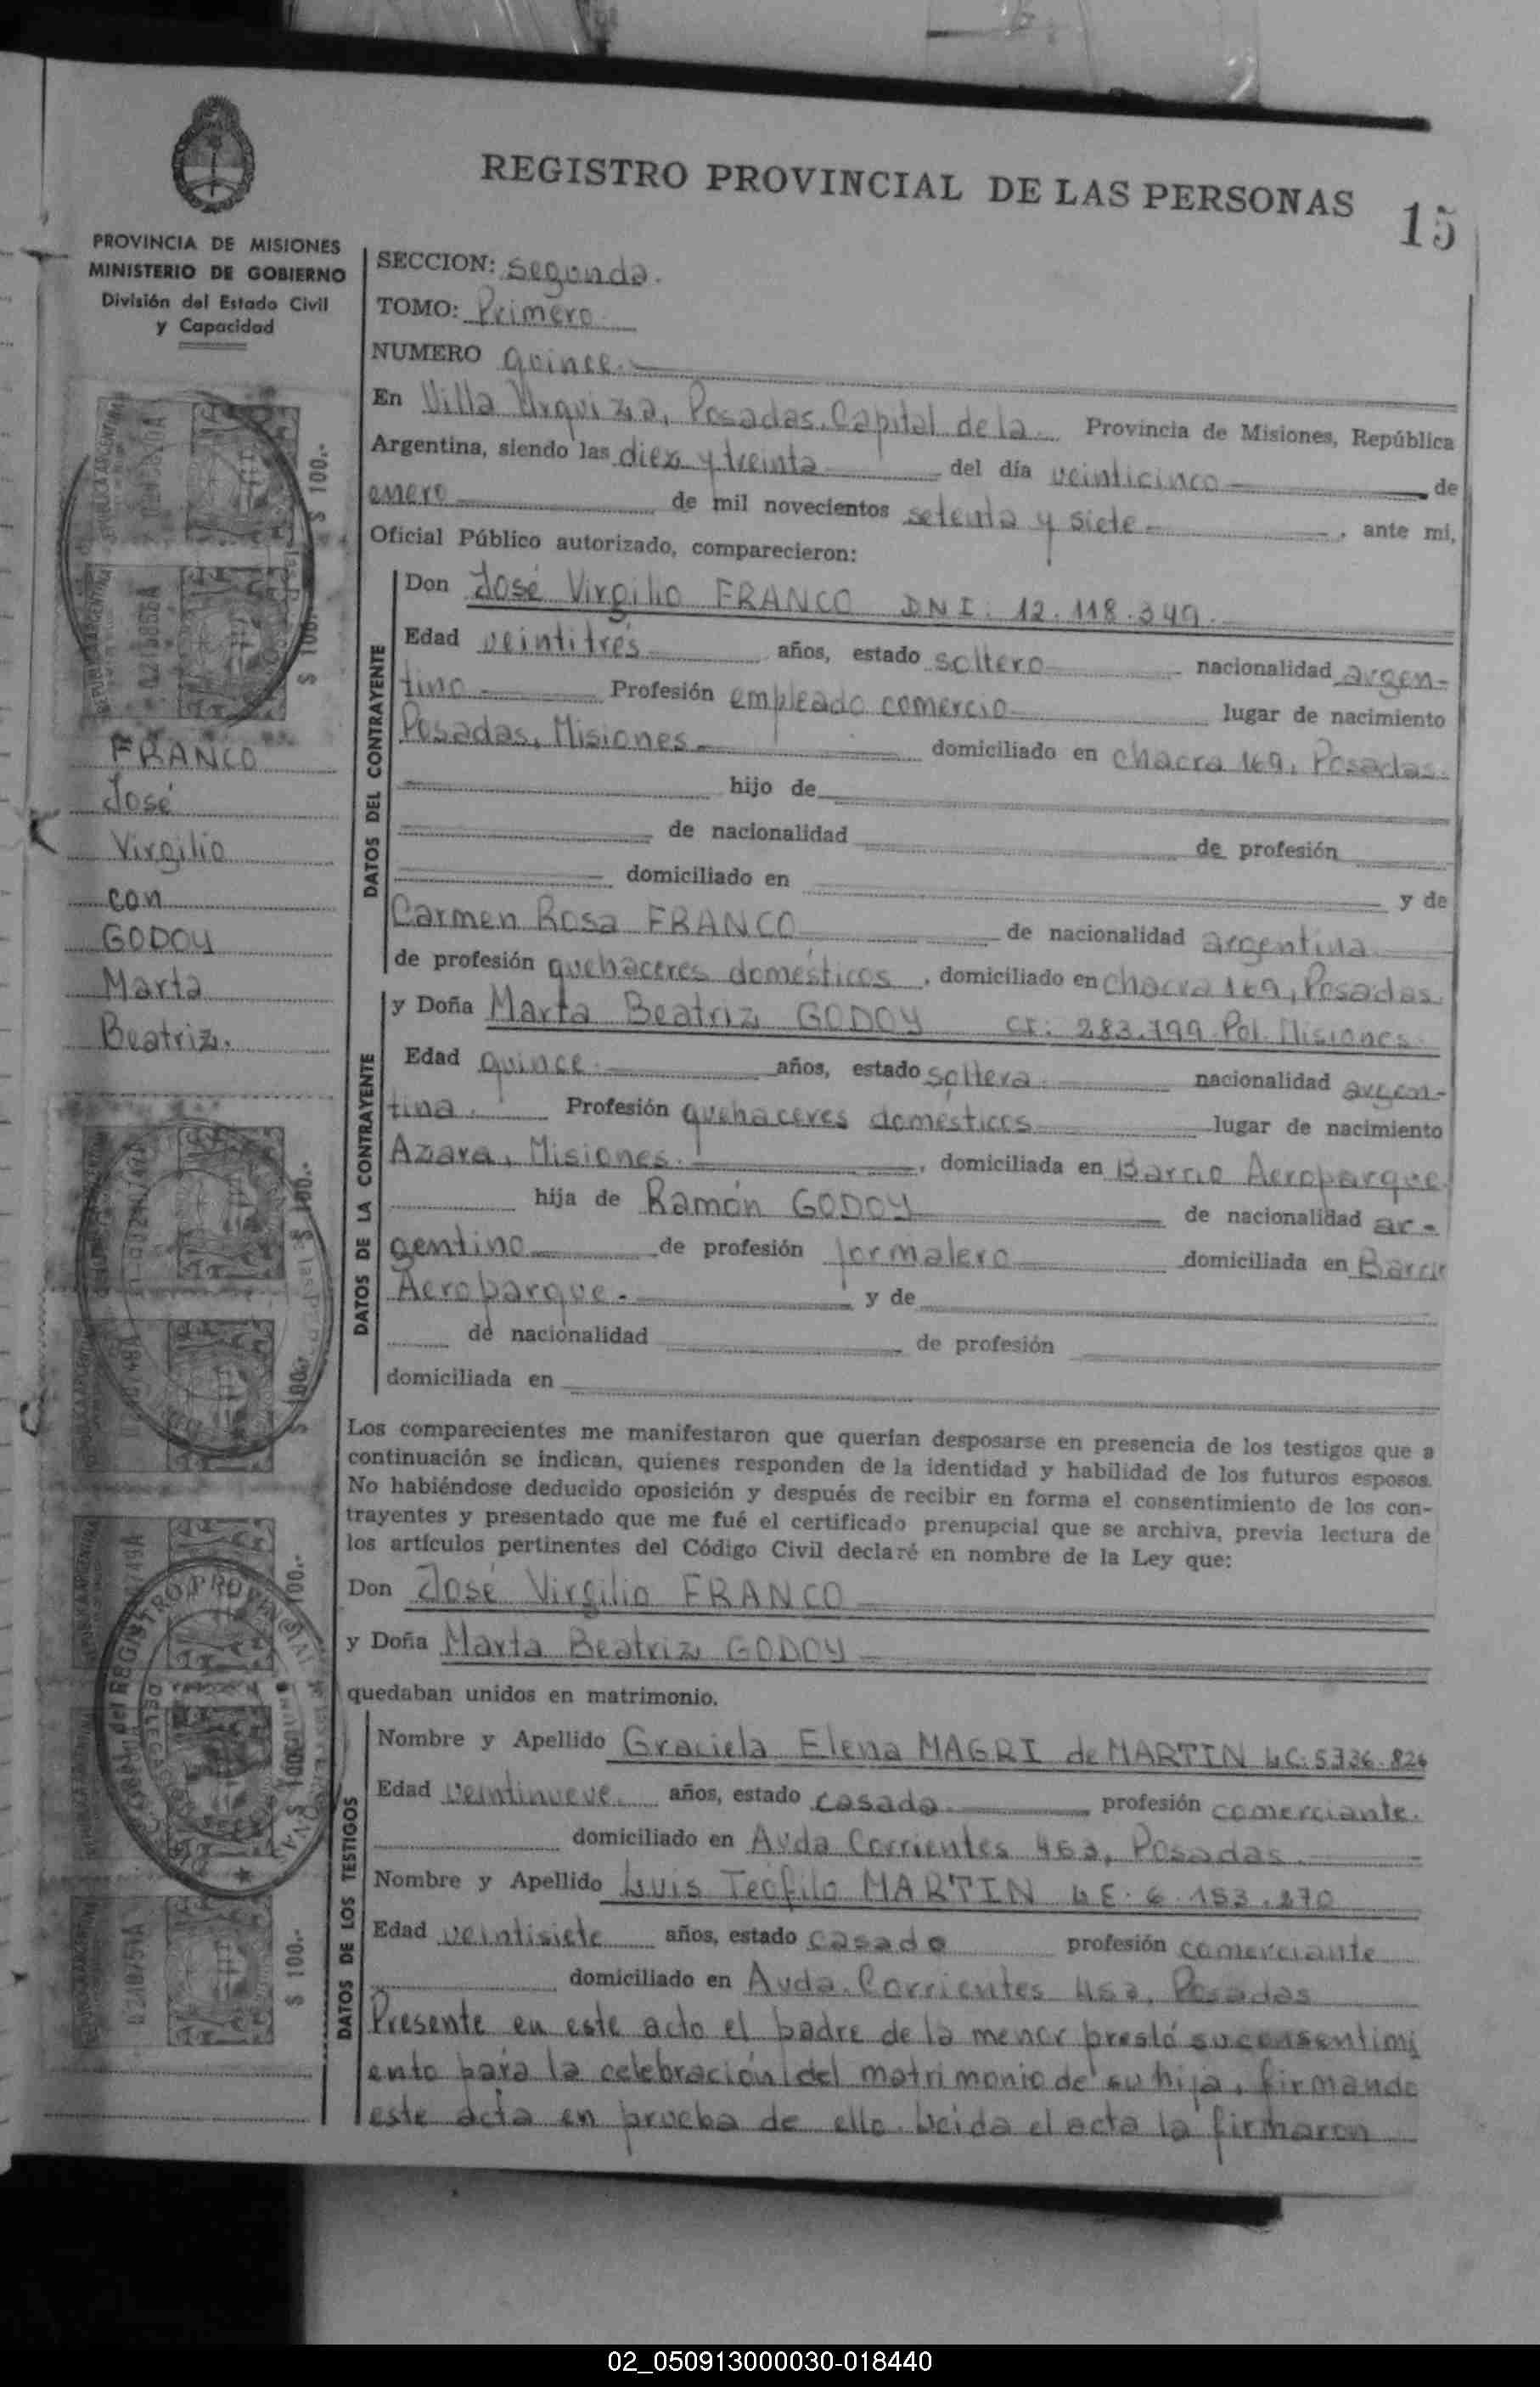 REGISTRO PROVINCIAL DE LAS PERSONAS 15
PROVINCIA DE MISIONES
MINISTERIO DE GOBIERNO
División del Estado Civil
y Capacidad
SECCION: Segunda.
TOMO: Primero
NUMERO quince.
En Villa Urquiza, Posadas, Capital de la Provincia de Misiones, República
Argentina, siendo las diez y treinta del día veinticinco de
enero de mil novecientos setenta y siete , ante mi,
Oficial Público autorizado, comparecieron:
DATOS DEL CONTRAYENTE
Don José Virgilio FRANCO DNI. 12.118.349.
Edad veintitrés años, estado soltero nacionalidad argen-
tino Profesión empleado comercio lugar de nacimiento
Posadas, Misiones domiciliado en chacra 169, Posadas.
hijo de
de nacionalidad de profesión
domiciliado en y de
Carmen Rosa FRANCO de nacionalidad argentina
de profesión quehaceres domésticos , domiciliado en chacra 169, Posadas.
FRANCO
José
Virgilio
con
GODOY
Marta
Beatriz.
DATOS DE LA CONTRAYENTE
y Doña Marta Beatriz GODOY CI: 283.199 Pol. Misiones
Edad quince. años, estado soltera nacionalidad argen-
tina. Profesión quehaceres domésticos lugar de nacimiento
Azara, Misiones. , domiciliada en Barrio Aeroparque.
hija de Ramón GODOY de nacionalidad ar-
gentino de profesión jornalero domiciliada en Barrio
Aeroparque. y de
de nacionalidad de profesión
domiciliada en
Los comparecientes me manifestaron que querían desposarse en presencia de los testigos que a
continuación se indican, quienes responden de la identidad y habilidad de los futuros esposos.
No habiéndose deducido oposición y después de recibir en forma el consentimiento de los con-
trayentes y presentado que me fué el certificado prenupcial que se archiva, previa lectura de
los artículos pertinentes del Código Civil declaré en nombre de la Ley que:
Don José Virgilio FRANCO
y Doña Marta Beatriz GODOY
quedaban unidos en matrimonio.
DATOS DE LOS TESTIGOS
Nombre y Apellido Graciela Elena MAGRI de MARTIN LC. 5.336.826
Edad veintinueve. años, estado casada profesión comerciante.
domiciliado en Avda Corrientes 463, Posadas.
Nombre y Apellido Luis Teófilo MARTIN LE. 6.153.270
Edad veintisiete años, estado casado profesión comerciante
domiciliado en Avda. Corrientes 463, Posadas
Presente en este acto el padre de la menor prestó su consentimi
ento para la celebración del matrimonio de su hija, firmando
este acta en prueba de ello. Leida el acta la firmaron
$ 100.-
$ 100.-
$ 100.-
$ 100.-
$ 100.-
$ 100.-
$ 100.-
02_050913000030-018440